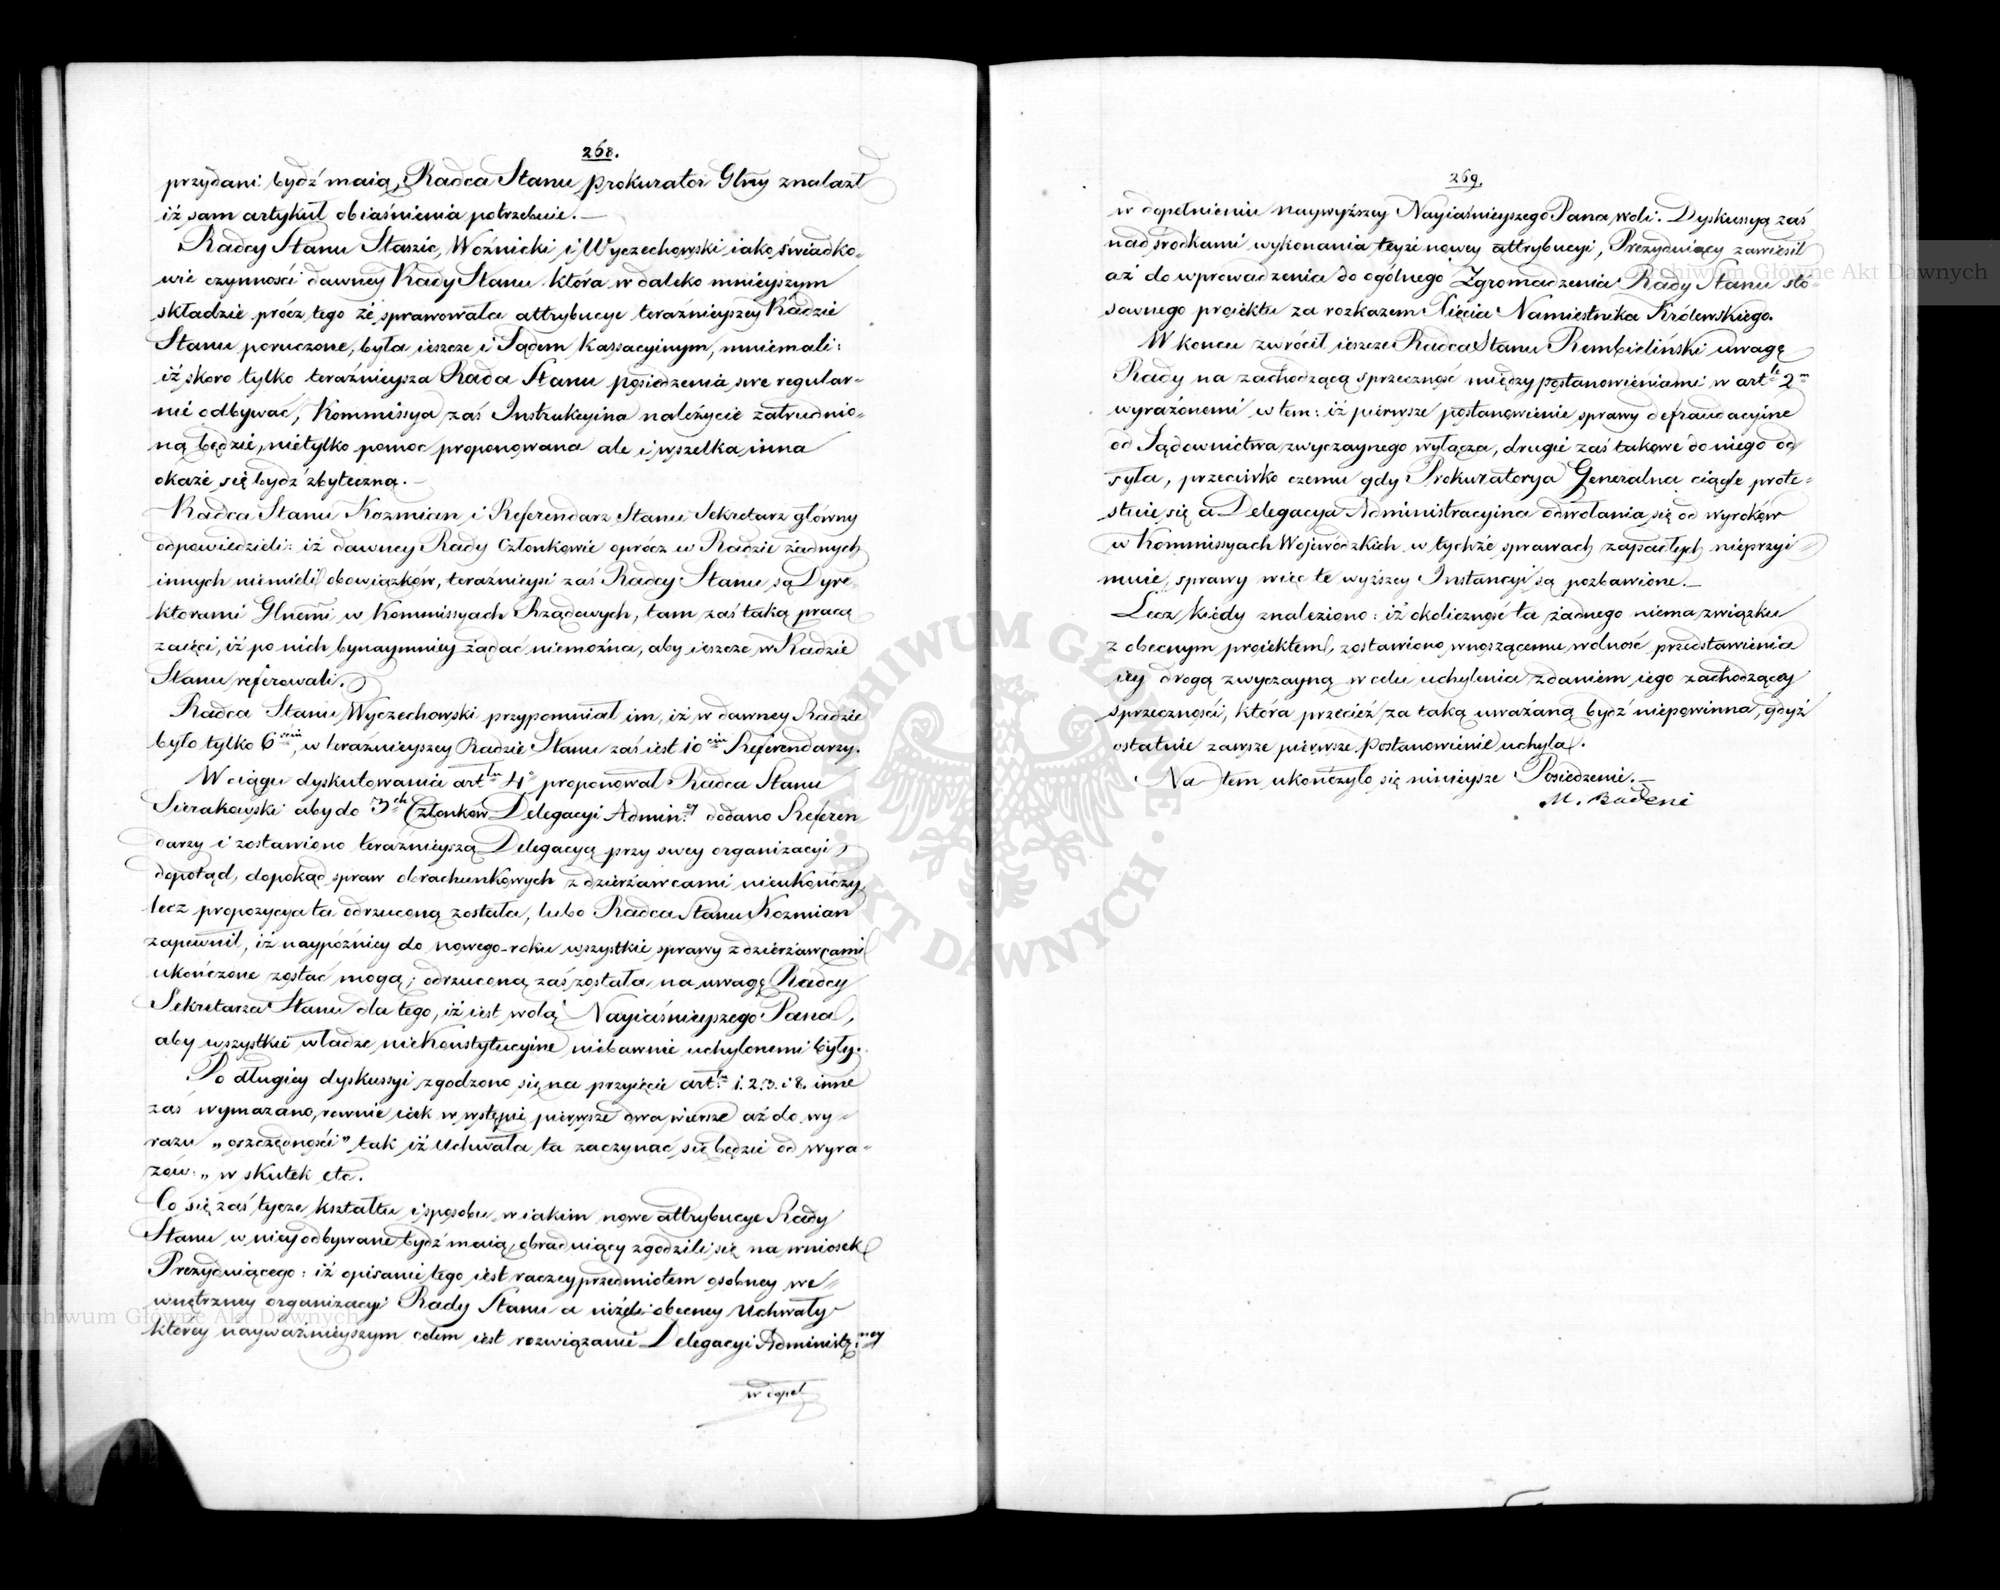 268.
przydani bydź maią, Radca Stanu Prokurator Glny znalazł
iż sam artykuł obiaśnienia potrzebuie. —
Radcy Stanu Staszic, Woźnicki i Wyczechowski iako świadko-
wie czynności dawney Rady Stanu która w daleko mnieyszym
składzie prócz tego że sprawowała attrybucye teraźnieyszey Radzie
Stanu poruczone, była ieszcze i Sądem Kassacyinym, mniemali:
iż skoro tylko teraźnieysza Rada Stanu posiedzenia swe regular-
nie odbywać, Kommissya zaś Instrukcyina należycie zatrudnio-
ną będzie, nietylko pomoc proponowana ale i wszelka inna
okaże się bydź zbyteczną. —
Radca Stanu Kozmian i Referendarz Stanu Sekretarz główny
odpowiedzieli: iż dawney Rady Członkowie oprócz w Radzie żadnych
innych niemieli obowiązków, teraźnieysi zaś Radcy Stanu są Dyre-
ktorami Glnemi w Kommissyach Rządowych, tam zaś taką pracą
zaięci, iż po nich bynaymniey żądać niemożna, aby ieszcze w Radzie
Stanu referowali.
Radca Stanu Wyczechowski przypomniał im, iż w dawney Radzie
było tylko 6ciu, w teraznieyszey Radzie Stanu zaś iest 10ciu Referendarzy.
W ciągu dyskutowania artłu 4o proponował Radca Stanu
Sierakowski aby do 3ch Członków Delegacyi Admin:ey dodano Referen
darzy i zostawiono teraźnieyszą Delegacyą przy swey organizacyi
dopotąd, dopokąd spraw obrachunkowych z dzierżawcami nieukończy,
lecz propozycya ta odrzuconą została, lubo Radca Stanu Kozmian
zapewnił, iż naypóźniey do nowego-roku wszystkie sprawy z dzierżawcami
ukończone zostać mogą; odrzuconą zaś została na uwagę Radcy
Sekretarza Stanu dla tego, iż iest wolą Nayiaśnieyszego Pana,
aby wszystkie władze nieKonstytucyine niebawnie uchylonemi były.
Po długiey dyskussyi zgodzono się na przyięcie art:łu 1. 2. 3. i 8. inne
zaś wymazano, rownie iak w wstępie pierwsze dwa wiersze aż do wy-
razu „oszczędności" tak iż Uchwała ta zaczynać się będzie od wyra-
zów: „w skutek etc.
Co się zaś tycze kształtu i sposobu w iakim nowe attrybucye Rady
Stanu w niey odbywane bydź maią, obraduiący zgodzili się na wniosek
Prezyduiącego: iż opisanie tego iest raczey przedmiotem osobney we-
wnętrzney organizacyi Rady Stanu a niżeli obecney Uchwały
którey nayważnieyszym celem iest rozwiązanie Delegacyi Administr:ney
w dopeł
269.
w dopełnieniu naywyższey Nayiaśnieyszego Pana woli. Dyskussyą zaś
nad środkami wykonania teyże nowey attrybucyi, Prezyduiący zawiesił
aż do wprowadzenia do ogólnego Zgromadzenia Rady Stanu sto-
sownego proiektu za rozkazem Xięcia Namiestnika Królewskiego.
W końcu zwrócił ieszcze Radca Stanu Rembieliński uwagę
Rady na zachodzącą sprzeczność między postanowieniami w art:le 2m
wyrażonemi w tem: iż pierwsze postanowienie sprawy defraudacyine
od Sądownictwa zwyczaynego wyłącza, drugie zaś takowe do niego od
syła, przeciwko czemu gdy Prokuratorya Generalna ciągle prote-
stuie się a Delegacya Administracyina odwołania się od wyroków
w Kommissyach Wojewódzkich w tychże sprawach zapadłych nieprzyi
muie, sprawy więc te wyższey Instancyi są pozbawione. —
Lecz kiedy znaleziono: iż okoliczność ta żadnego niema związku
z obecnym proiektem, zostawiono wnoszącemu wolność przedstawienia
iey drogą zwyczayną w celu uchylenia zdaniem iego zachodzącey
sprzeczności, która przecież za taką uważaną bydź niepowinna, gdyż
ostatnie zawsze pierwsze Postanowienie uchyla.
Na tem ukończyło się ninieysze Posiedzenie. —
M. Badeni
Archiwum Główne Akt Dawnych
Archiwum Główne Akt Dawnych
ARCHIWUM GŁÓWNE AKT DAWNYCH